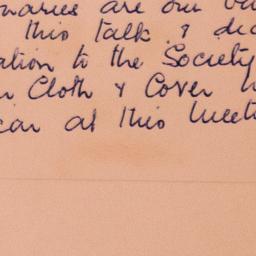 naries are our
this talk &
ation to the Society
Cloth & Cover
at this Meet